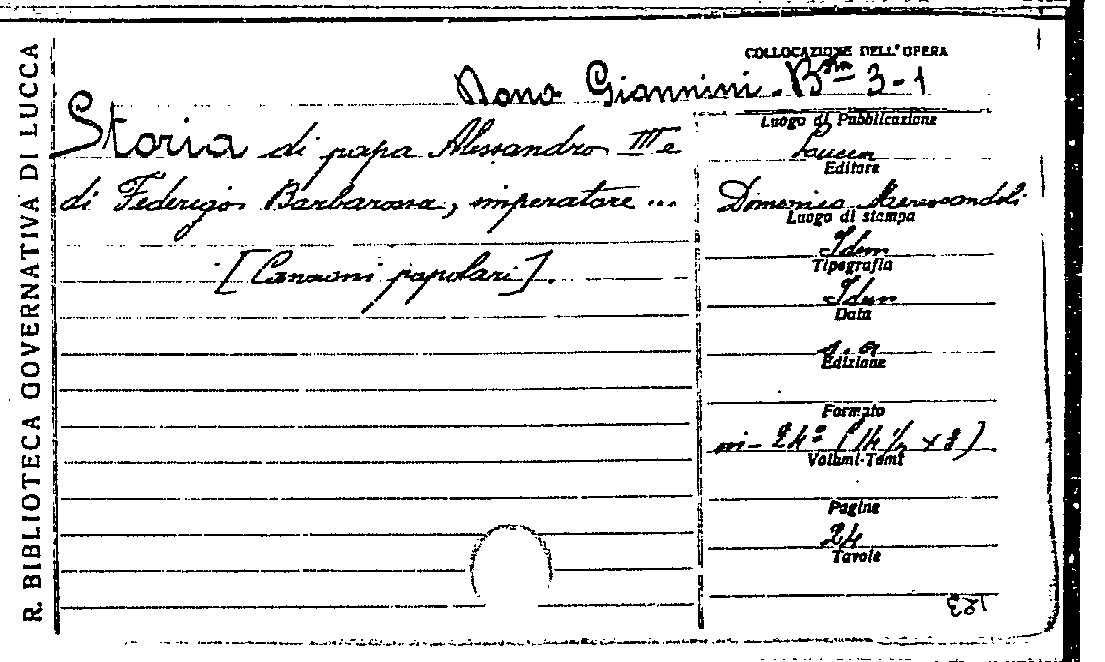 R. BIBLIOTECA GOVERNATIVA DI LUCCA
COLLOCAZIONE DELL'OPERA
Dono Giannini. B 3-1
Storia di papa Alessandro III e
di Federigo Barbarossa, imperatore ...
[Canzoni popolari].
Luogo di Pubblicazione
Lucca
Editore
Domenico
Luogo di stampa
Idem
Tipografia
Idem
Data
s.a
Edizione
Formato
in-24º (14½ x 8)
Volumi-Tomi
Pagine
24
Tavole